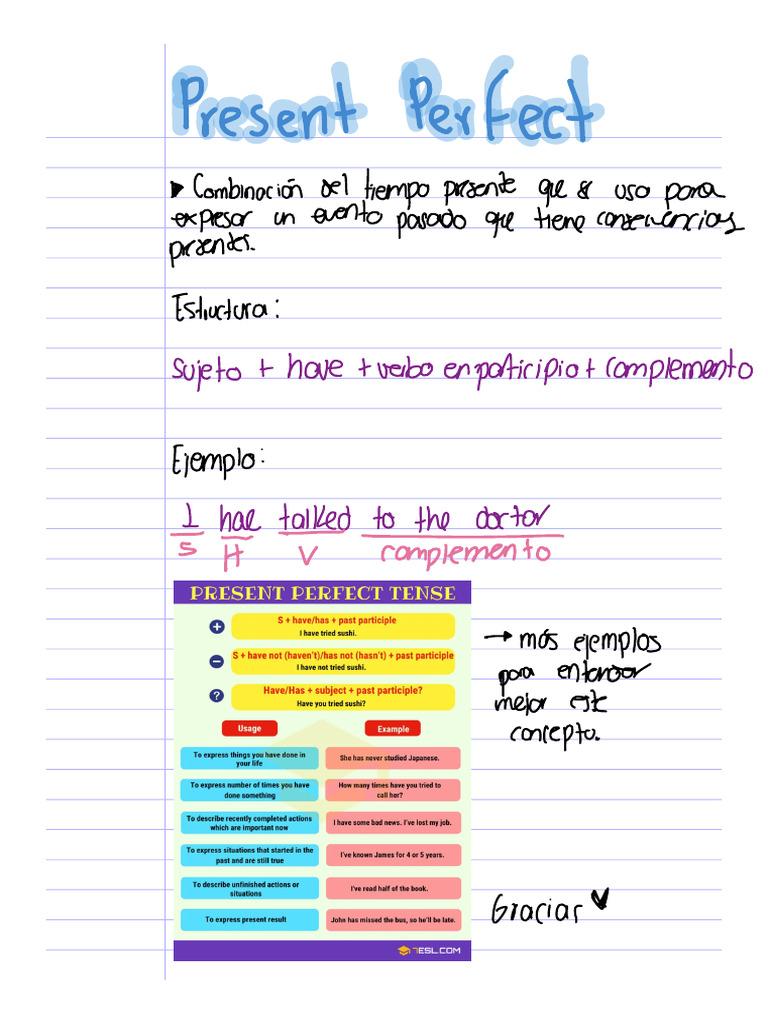 Present Perfect
Combinación del tiempo presente que se usa para
expresar un evento pasado que tiene consecuencias
presentes.
Estructura:
sujeto + have + verbo en participio + complemento
Ejemplo:
I hae talked to the doctor
S H V complemento
PRESENT PERFECT TENSE
+ S + have/has + past participle
I have tried sushi.
− S + have not (haven't)/has not (hasn't) + past participle
I have not tried sushi.
? Have/Has + subject + past participle?
Have you tried sushi?
Usage Example
To express things you have done in
your life
She has never studied Japanese.
To express number of times you have
done something
How many times have you tried to
call her?
To describe recently completed actions
which are important now
I have some bad news. I've lost my job.
To express situations that started in the
past and are still true
I've known James for 4 or 5 years.
To describe unfinished actions or
situations
I've read half of the book.
To express present result
John has missed the bus, so he'll be late.
7ESL.COM
→ más ejemplos
para
mejor este
concepto.
Gracias